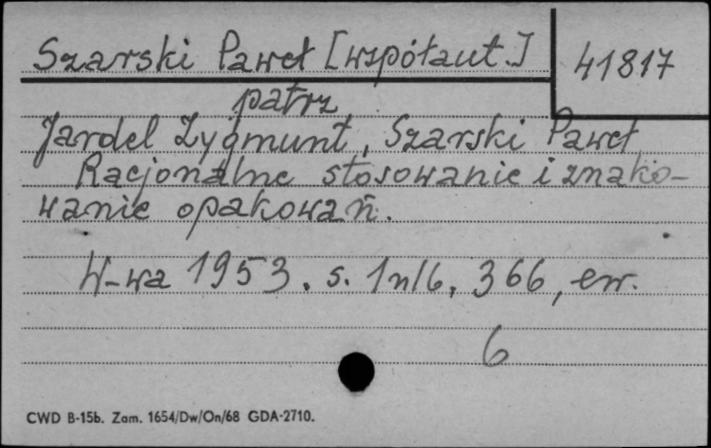 Szarski Paweł [współaut.]
41817
patrz
Jardel Zygmunt, Szarski Paweł
Racjonalne stosowanie i znako-
wanie opakowań.
W-wa 1953. s. 1nlb, 366, err.
6
CWD B-15b. Zam. 1654/Dw/On/68 GDA-2710.